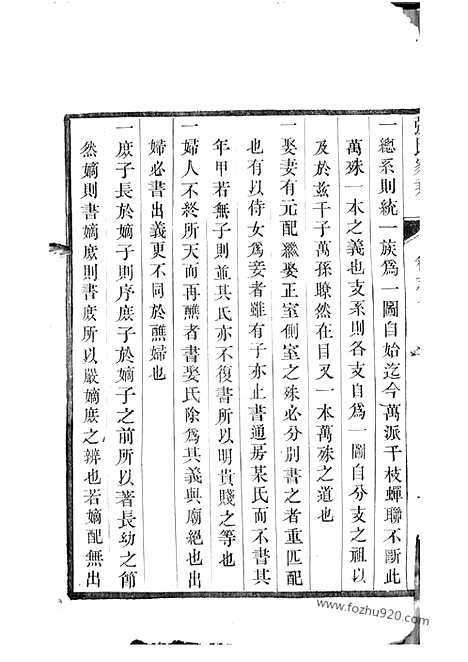 一總系則統一族爲一圖自始迄今萬派千枝蟬聯不斷此
萬殊一本之義也支系則各支自爲一圖自分支之祖以
及於茲千子萬孫瞭然在目又一本萬殊之道也
一娶妻有元配獵娶正室側室之殊必分別書之者重匹配
也有以侍女爲妾者雖有子亦止書通房某氏而不書其
年甲若無子則並其氏亦不復書所以明貴賤之等也
一婦人不終所天而再醮者書娶氏除爲其義與廟絕也出
婦必書出義更不同於醮婦也
一庶子長於嫡子則序庶子於嫡子之前所以著長幼之節
然嫡則書嫡庶則書庶所以嚴嫡庶之辨也若嫡配無出
www.fozhu920.com